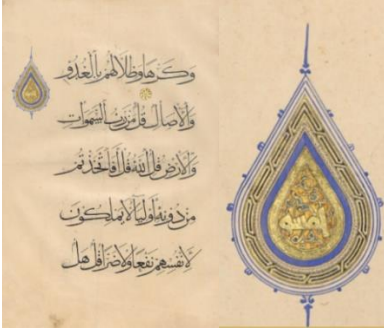 وكرها وظلالهم بالغدو
والاصال قل من رب السموات
والارض قل الله قل افاتخذتم
من دونه اوليا لا يملكون
لانفسهم نفعا ولا ضرا قل هل